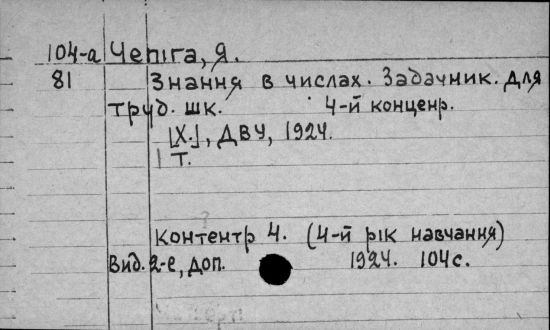 104-а Чепіга, Я.
81 Знання в числах. Задачник. для
труд. шк. 4-й конценр.
[Х.], ДВУ, 1924.
1 Т.
контентр 4. (4-й рік навчання)
Вид. 2-е, доп. 1924. 104 с.